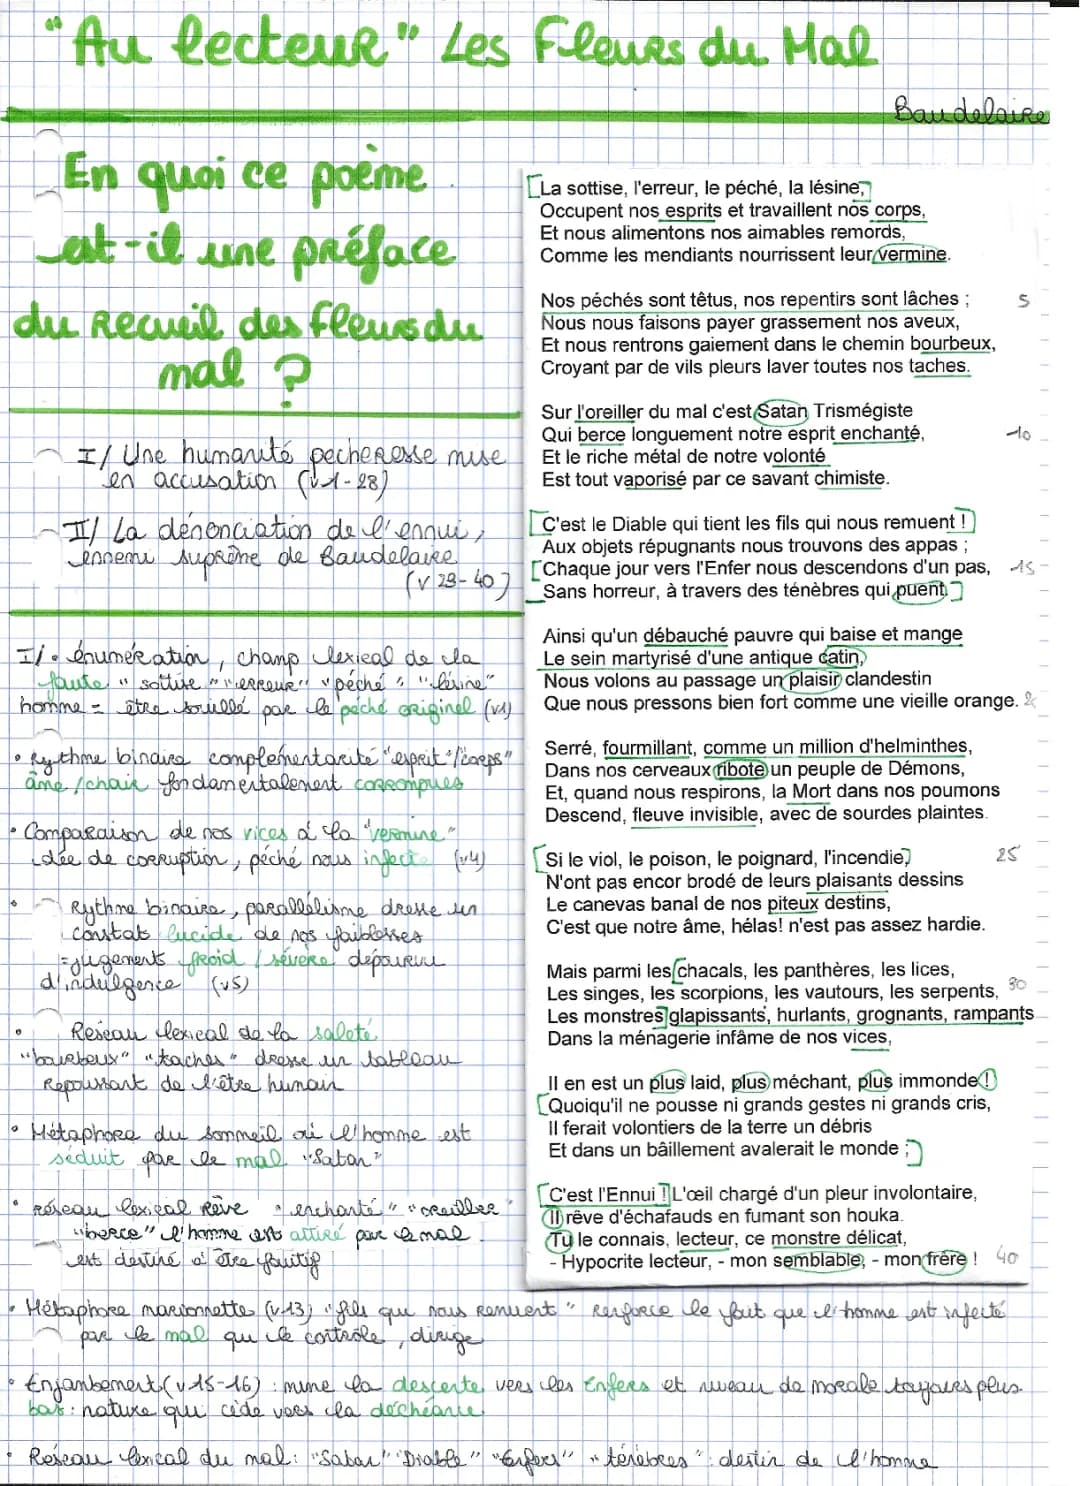 "Au lecteur" Les Fleurs du Mal
Baudelaire
En quoi ce poème
est-il une préface
du recueil des fleurs du
mal ?
I/ Une humanité pecheresse mise
en accusation (v1-28)
II/ La dénonciation de l'ennui,
ennemi suprême de Baudelaire
(v 29-40)
La sottise, l'erreur, le péché, la lésine,
Occupent nos esprits et travaillent nos corps,
Et nous alimentons nos aimables remords,
Comme les mendiants nourrissent leur vermine.
Nos péchés sont têtus, nos repentirs sont lâches ; 5
Nous nous faisons payer grassement nos aveux,
Et nous rentrons gaiement dans le chemin bourbeux,
Croyant par de vils pleurs laver toutes nos taches.
Sur l'oreiller du mal c'est Satan Trismégiste
Qui berce longuement notre esprit enchanté, 10
Et le riche métal de notre volonté
Est tout vaporisé par ce savant chimiste.
C'est le Diable qui tient les fils qui nous remuent !
Aux objets répugnants nous trouvons des appas ;
Chaque jour vers l'Enfer nous descendons d'un pas, 15
Sans horreur, à travers des ténèbres qui puent.
Ainsi qu'un débauché pauvre qui baise et mange
Le sein martyrisé d'une antique catin,
Nous volons au passage un plaisir clandestin
Que nous pressons bien fort comme une vieille orange.
Serré, fourmillant, comme un million d'helminthes,
Dans nos cerveaux ribote un peuple de Démons,
Et, quand nous respirons, la Mort dans nos poumons
Descend, fleuve invisible, avec de sourdes plaintes.
Si le viol, le poison, le poignard, l'incendie, 25
N'ont pas encor brodé de leurs plaisants dessins
Le canevas banal de nos piteux destins,
C'est que notre âme, hélas! n'est pas assez hardie.
Mais parmi les chacals, les panthères, les lices,
Les singes, les scorpions, les vautours, les serpents, 30
Les monstres glapissants, hurlants, grognants, rampants
Dans la ménagerie infâme de nos vices,
Il en est un plus laid, plus méchant, plus immonde !
Quoiqu'il ne pousse ni grands gestes ni grands cris,
Il ferait volontiers de la terre un débris
Et dans un bâillement avalerait le monde ;
C'est l'Ennui ! L'œil chargé d'un pleur involontaire,
Il rêve d'échafauds en fumant son houka.
Tu le connais, lecteur, ce monstre délicat,
- Hypocrite lecteur, - mon semblable, - mon frère ! 40
I/ • énumération, champ lexical de la
faute "sottise" "erreur" "péché" "lésine"
homme = être souillé par le péché originel (v1)
• Rythme binaire complémentarité "esprit"/"corps"
âme / chair fondamentalement corrompues
• Comparaison de nos vices à la "vermine"
idée de corruption, péché nous infecte (v4)
• Rythme binaire, parallélisme dresse un
constat lucide de nos faiblesses
= jugements froid / sévère dépourvu
d'indulgence (v5)
• Réseau lexical de la saleté
"bourbeux" "taches" dresse un tableau
repoussant de l'être humain
• Métaphore du sommeil où l'homme est
séduit par le mal "Satan"
• réseau lexical rêve "enchanté" "oreiller"
"berce" l'homme est attiré par le mal
est destiné à être fautif
• Métaphore marionnette (v.13) "fils qui nous remuent" renforce le fait que l'homme est infecté
par le mal qui le contrôle, dirige
• Enjambement (v 15-16) : mime la descente vers les Enfers et niveau de morale toujours plus
bas : nature qui cède vers la déchéance
• Réseau lexical du mal : "Satan" "Diable" "Enfers" "ténèbres" : destin de l'homme